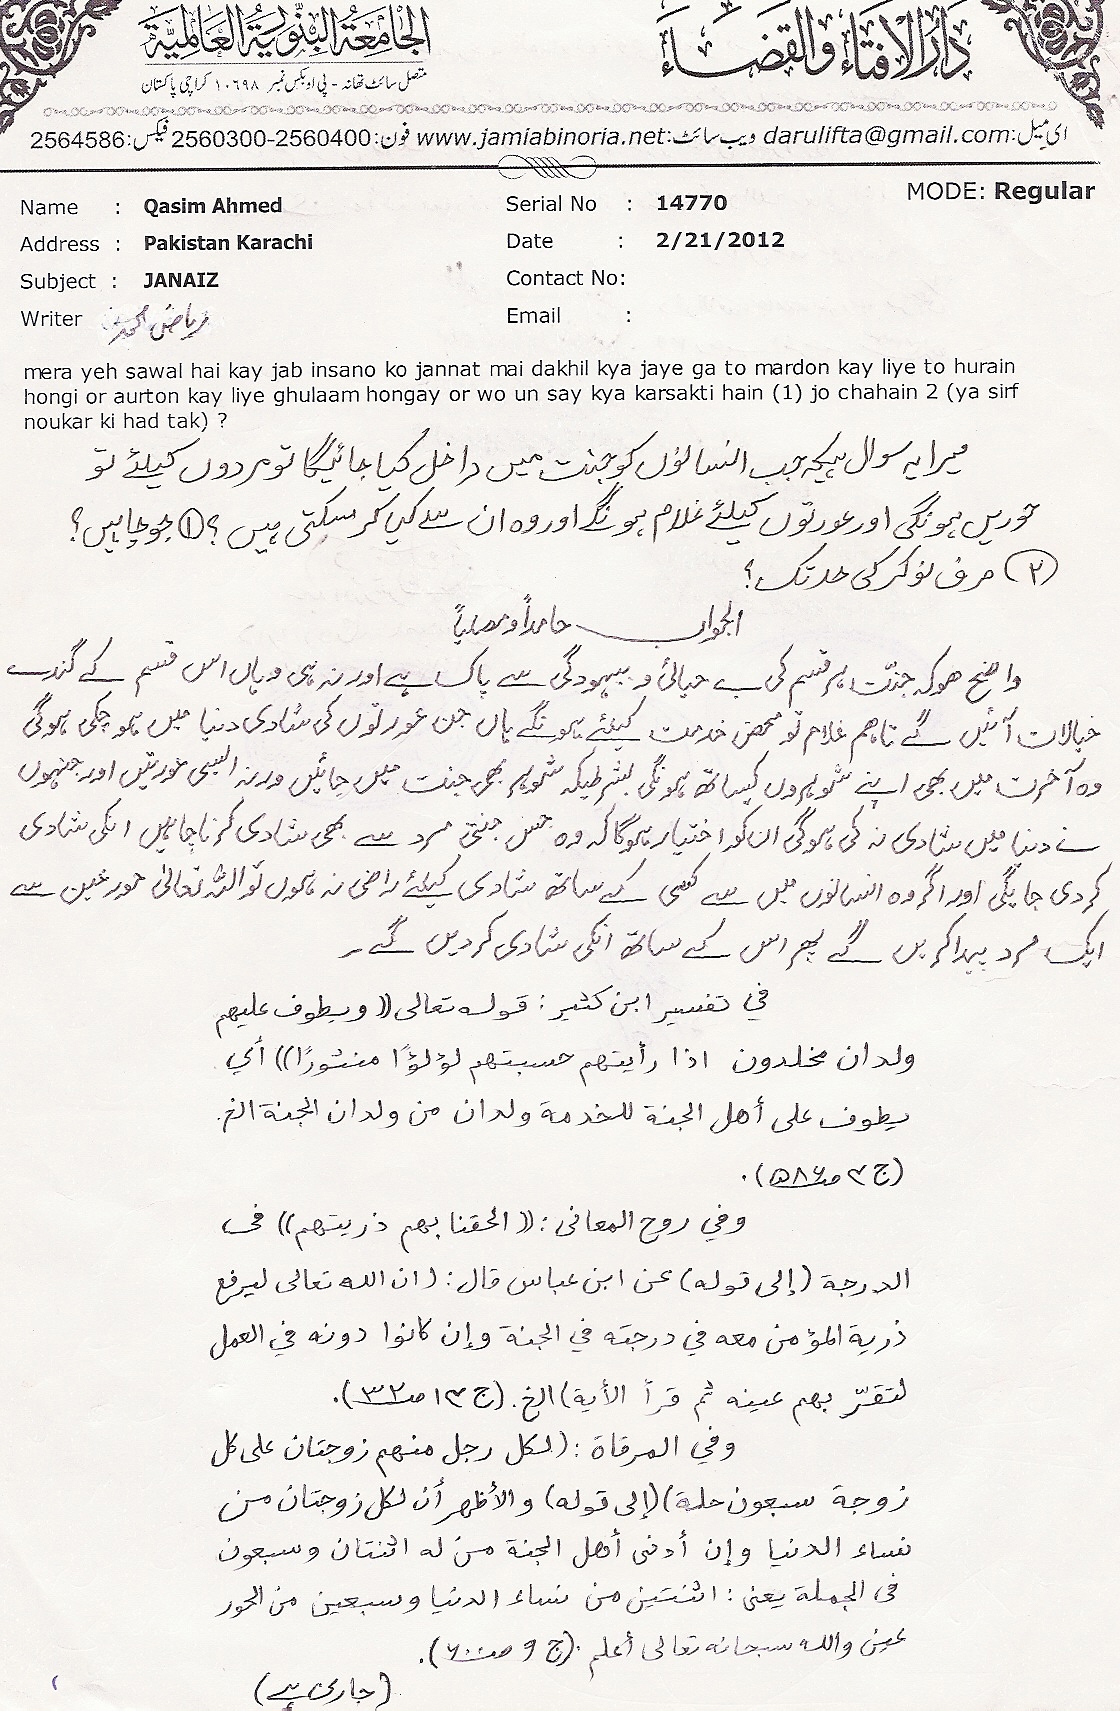 دار الافتاء والقضاء
الجامعة البنورية العالمية
متصل سائٹ تھانہ - پی او بکس نمبر ۱۰۶۹۸ کراچی پاکستان
ای میل:darulifta@gmail.com ویب سائٹ:www.jamiabinoria.net فون:2560300-2560400 فیکس:2564586
MODE: Regular
Name : Qasim Ahmed
Serial No : 14770
Address : Pakistan Karachi
Date : 2/21/2012
Subject : JANAIZ
Contact No:
Writer ریاض محمد
Email :
mera yeh sawal hai kay jab insano ko jannat mai dakhil kya jaye ga to mardon kay liye to hurain
hongi or aurton kay liye ghulaam hongay or wo un say kya karsakti hain (1) jo chahain 2 (ya sirf
noukar ki had tak) ?
میرا یہ سوال ہیکہ جب انسانوں کو جنت میں داخل کیا جائیگا تو مردوں کیلئے تو
حوریں ہونگی اور عورتوں کیلئے غلام ہونگے اور وہ ان سے کیا کر سکتی ہیں ؟ ① جو چاہیں ؟
(۲) صرف نوکر کی حد تک ؟
الجواب حامداً ومصلیاً
واضح ھوکہ جنت ہر قسم کی بے حیائی و بیہودگی سے پاک ہے اور نہ ہی وہاں اس قسم کے گندے
خیالات آئیں گے تاہم غلام تو محض خدمت کیلئے ہونگے ہاں جن عورتوں کی شادی دنیا میں ہو چکی ہوگی
وہ آخرت میں بھی اپنے شوہروں کیساتھ ہونگی بشرطیکہ شوہر بھی جنت میں جائیں ورنہ ایسی عورتیں اور جنہوں
نے دنیا میں شادی نہ کی ہوگی ان کو اختیار ہوگا کہ وہ جس جنتی مرد سے بھی شادی کرنا چاہیں انکی شادی
کردی جائیگی اور اگر وہ انسانوں میں سے کسی کے ساتھ شادی کیلئے راضی نہ ہوں تو اللہ تعالیٰ حور عین سے
ایک مرد پیدا کریں گے پھر اس کے ساتھ انکی شادی کردیں گے۔
في تفسير ابن كثير : قوله تعالى ((ويطوف عليهم
ولدان مخلدون اذا رأيتهم حسبتهم لؤلؤًا منثورًا)) أي
يطوف على أهل الجنة للخدمة ولدان من ولدان الجنة الخ.
(ج ۴ صـ ۵۸۶).
وفي روح المعانى : ((الحقنا بهم ذريتهم)) فى
الدرجة (إلى قوله) عن ابن عباس قال : (ان الله تعالى ليرفع
ذرية المؤمن معه في درجته في الجنة وإن كانوا دونه في العمل
لتقرّ بهم عينه ثم قرأ الأية) الخ. (ج ۱۴ صـ ۳۲).
وفي المرقاة : (لكل رجل منهم زوجتان على كل
زوجة سبعون حلة) (إلى قوله) والأظهر أن لكل زوجتان من
نساء الدنيا وإن أدنى أهل الجنة من له اثنتان وسبعون
فى الجملة يعنى : اثنتين من نساء الدنيا وسبعين من الحور
عين والله سبحانه تعالى أعلم . (ج ۹ صـ ۶۰۰).
(جاری ہے)